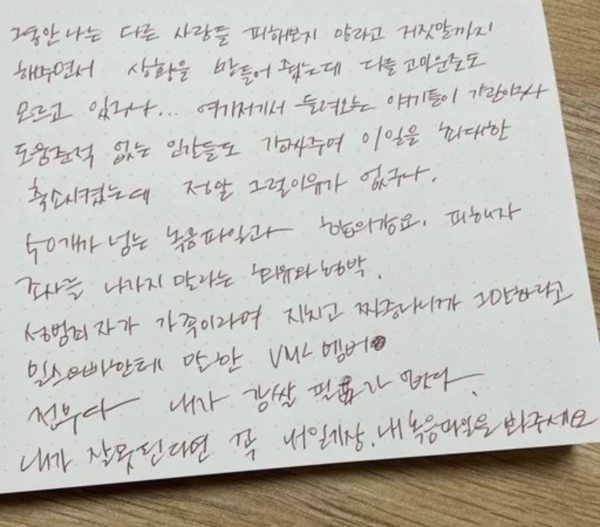 그동안 나는 다른 사람들 피해보지 말라고 거짓말까지
해주면서 상황을 만들어 줬는데 다들 고마운줄도
모르고 있구나... 여기저기서 들려오는 얘기들이 가관이구나
도움준적 없는 인간들도 감싸주며 이일을 최대한
축소시켰는데 정말 그럴이유가 없구나.
50개가 넘는 녹음파일과 합의강요. 피해자
조사를 나가지 말라는 회유와 협박.
성범죄자가 가족이라며 지치고 짜증나니까 그만하라고
말한 멤버
전부다 내가 감쌀 필요가 없다.
내가 잘못된다면 꼭 내일기장, 내녹음파일을 봐주세요